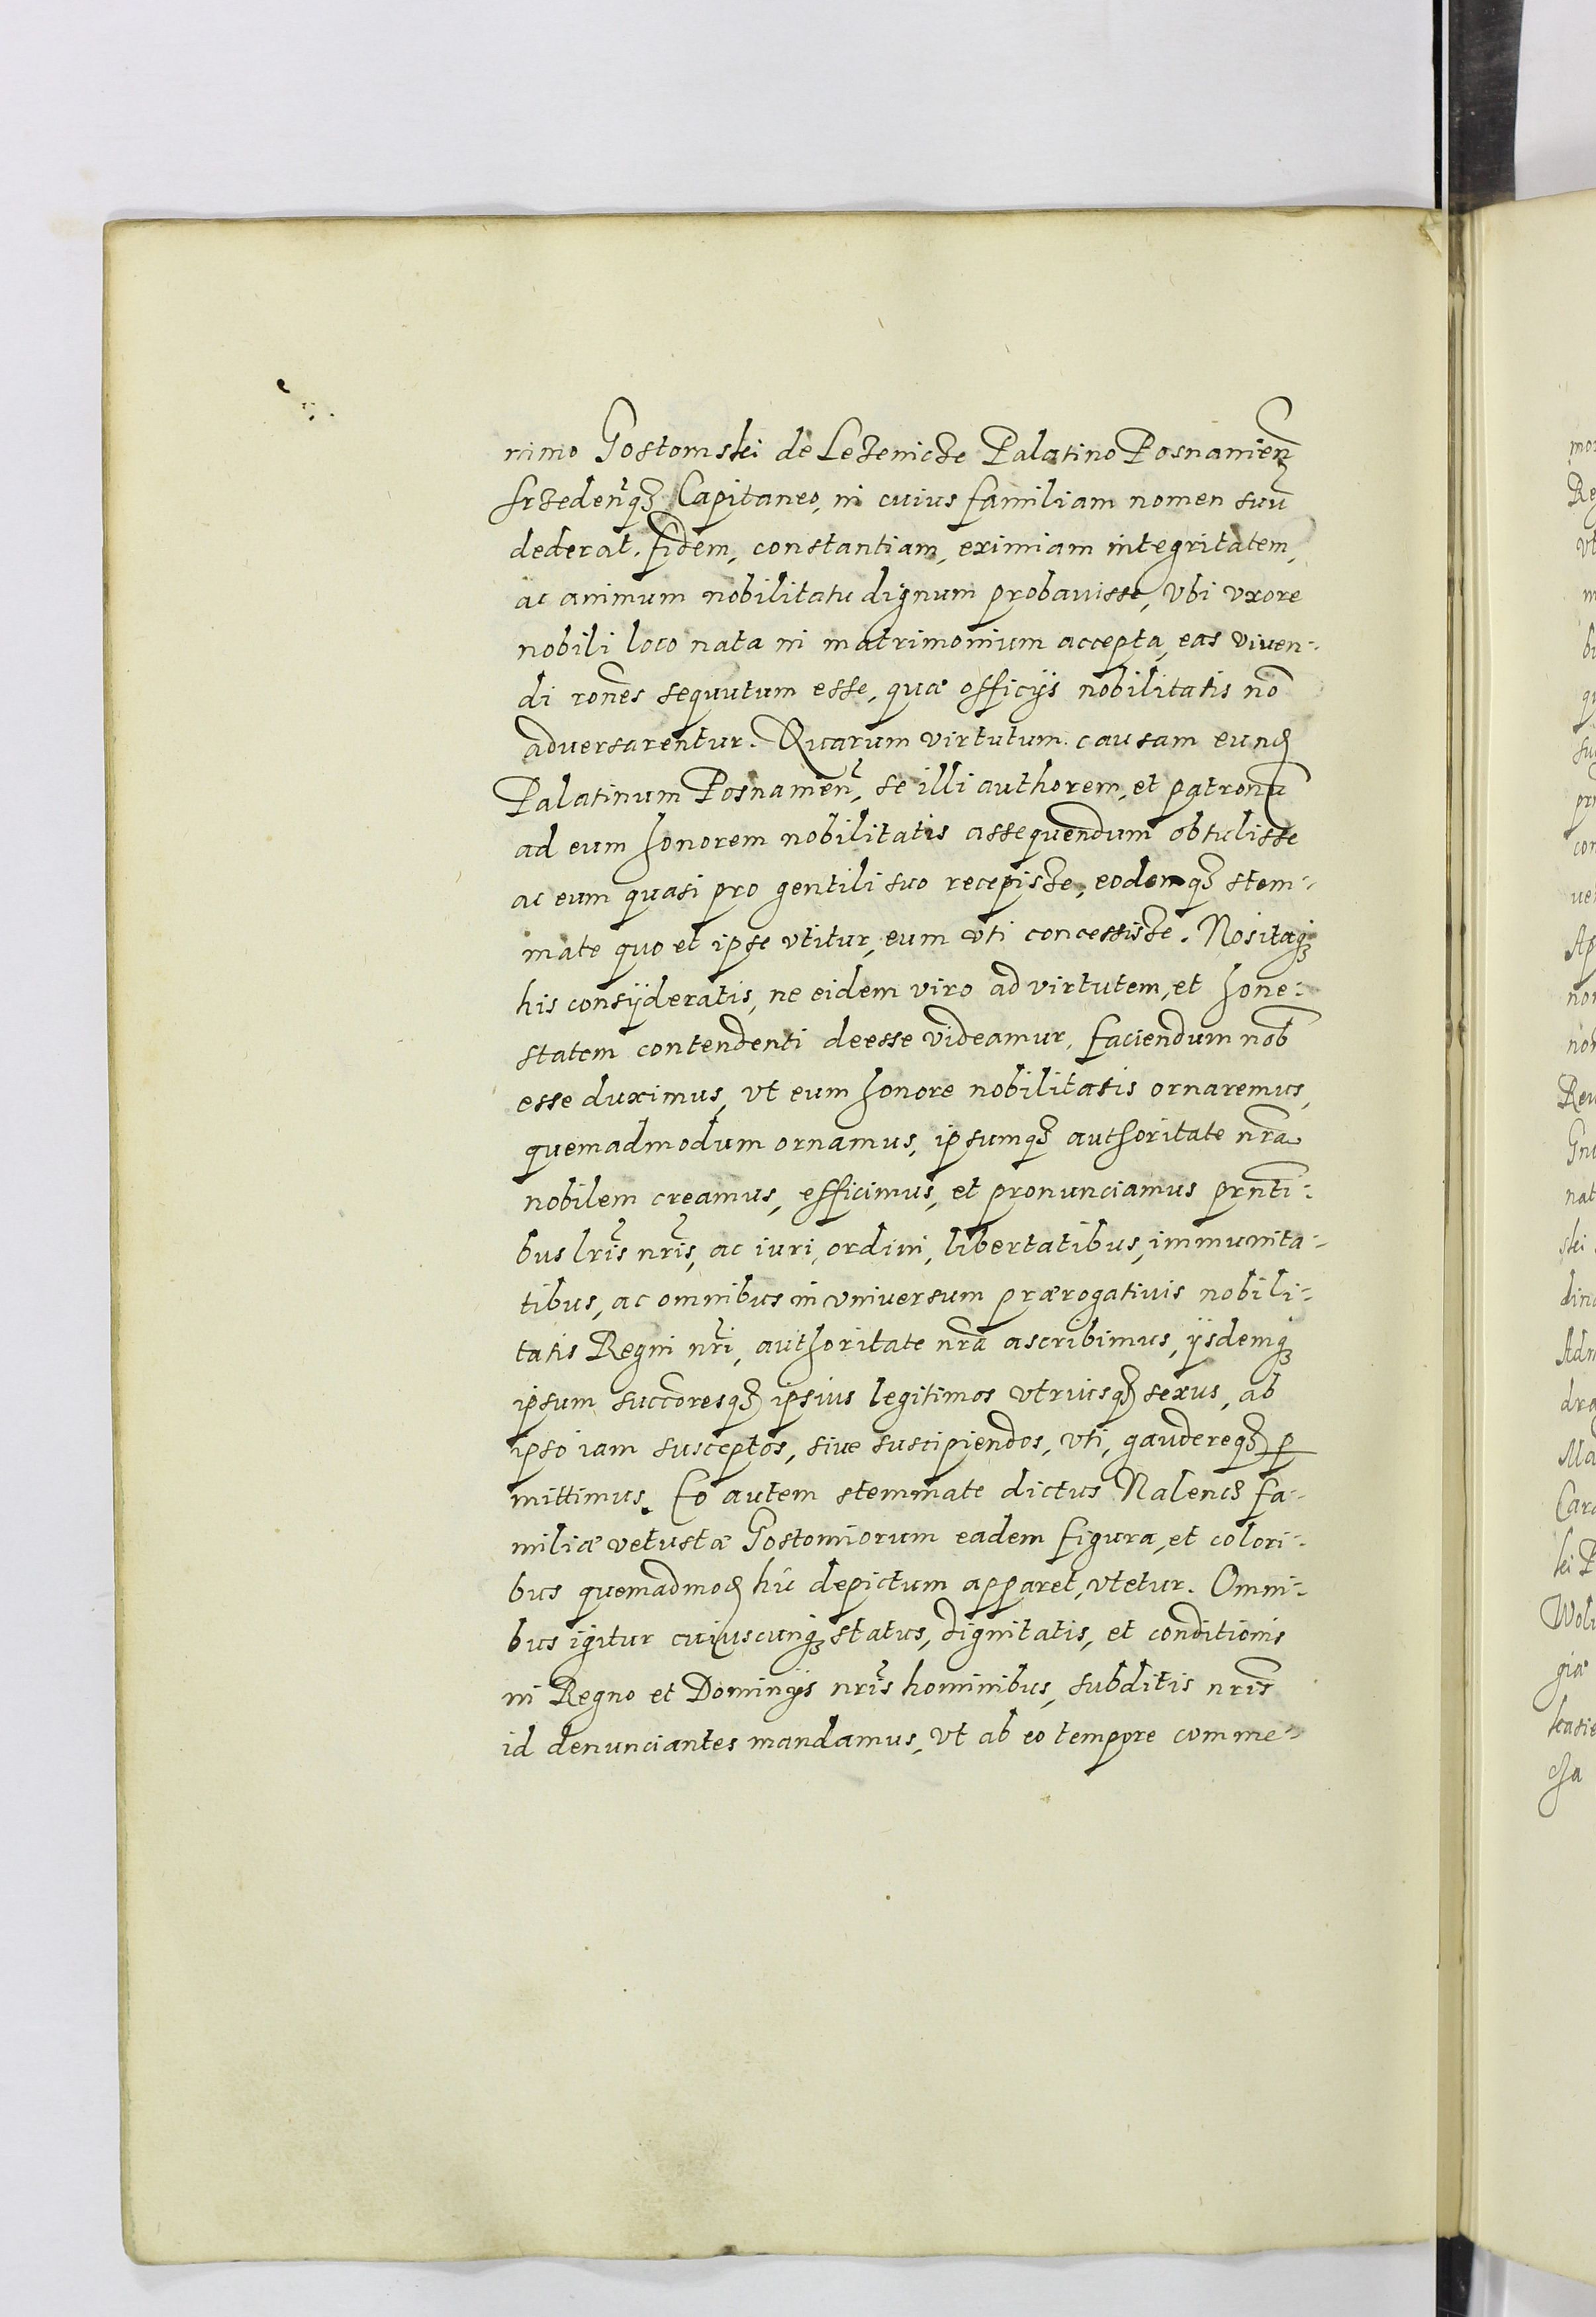 nimo Gostomski de Lezenicze Palatino Posnanien̄
Srzedeñq₃ Capitaneo, in cuius familiam nomen suū
dederat. Fidem, constantiam, eximiam integritatem,
ac animum nobilitatu dignum probauisse, vbi vxore
nobili loco nata in matrimonium accepta, eas viuen-
di rōnes sequutum esse, quæ officijs nobilitatis nō
aduersarentur. Quarum virtutum causam eund
Palatinum Posnanien̄, se illi authorem, et patronū
ad eum honorem nobilitatis assequendum obtulisse
ac eum quasi pro gentili suo recepisse, eodemq₃ stem-
mate quo et ipse vtitur, eum vti concessisse. Nos itaq₃
his consijderatis, ne eidem viro ad virtutem, et hone-
statem contendenti deesse videamur, faciendum nob̄
esse duximus, vt eum honore nobilitatis ornaremus,
quemadmodum ornamus, ipsumq₃ authoritate nrā
nobilem creamus, efficimus, et pronunciamus prn̄ti-
bus lrīs nrīs, ac iuri, ordini, libertatibus, immunita-
tibus, ac omnibus in vniuersum prærogatiuis nobili-
tatis Regni nrī, authoritate nrā ascribimus, ijsdemq₃
ipsum succōresq₃ ipsius legitimos vtriusq₃ sexus, ab
ipso iam susceptos, siue suscipiendos, vti, gaudereq₃ ꝑ
mittimus. Eo autem stemmate dictus Nalencz fa-
miliæ vetustæ Gostomiorum eadem figura, et colori-
bus quemadmod hic depictum apparet, vtetur. Omni-
bus igitur cuiuscunq₃ status, dignitatis, et conditionis
in Regno et Dominijs nrīs hominibus, subditis nrīs
id denunciantes mandamus, vt ab eo tempore comme-